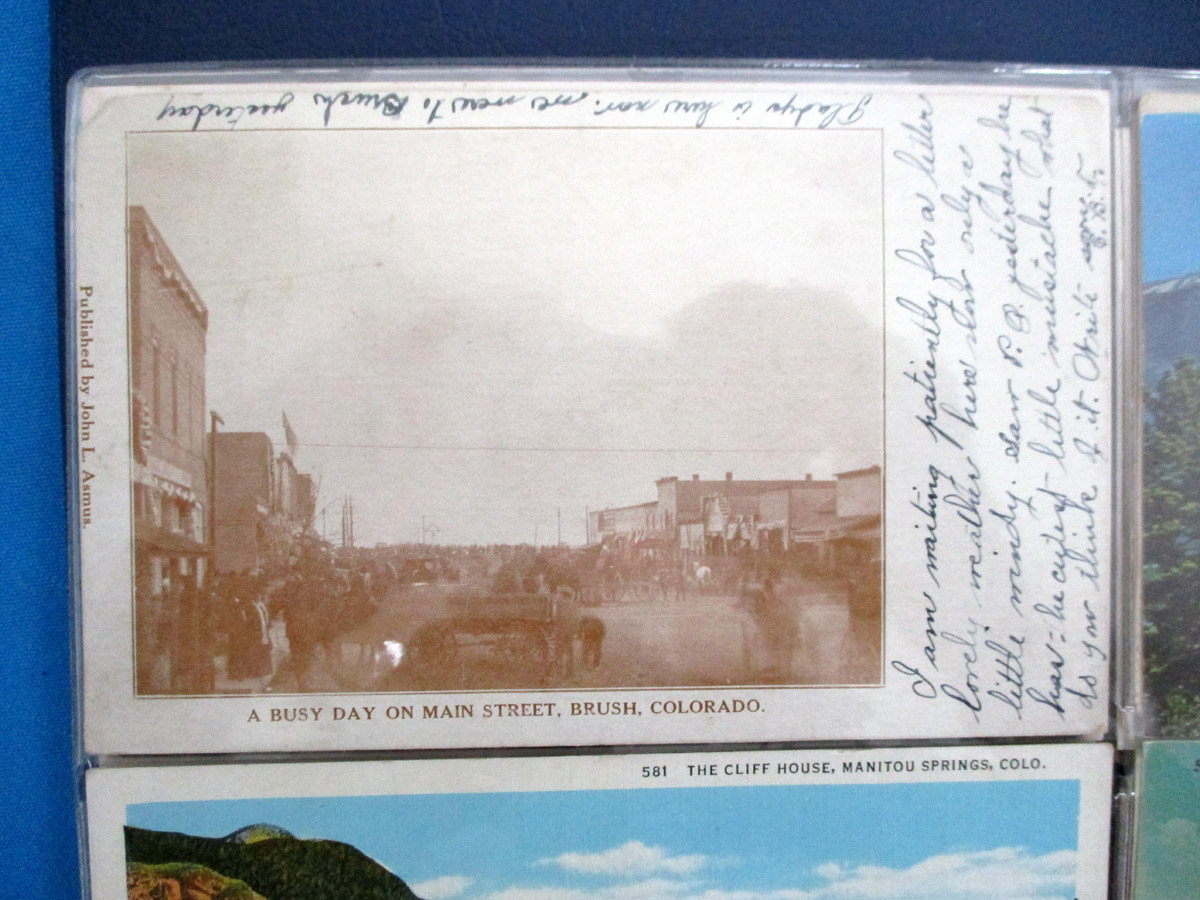 Gladys is here now. we went to Brush yesterday
Published by John L. Asmus.
A BUSY DAY ON MAIN STREET, BRUSH, COLORADO.
I am waiting patiently for a letter
lovely weather here start only a
little windy. Saw P.P. yesterday he
has - he cutest little mustache what
do you think of it. Write
581 THE CLIFF HOUSE, MANITOU SPRINGS, COLO.